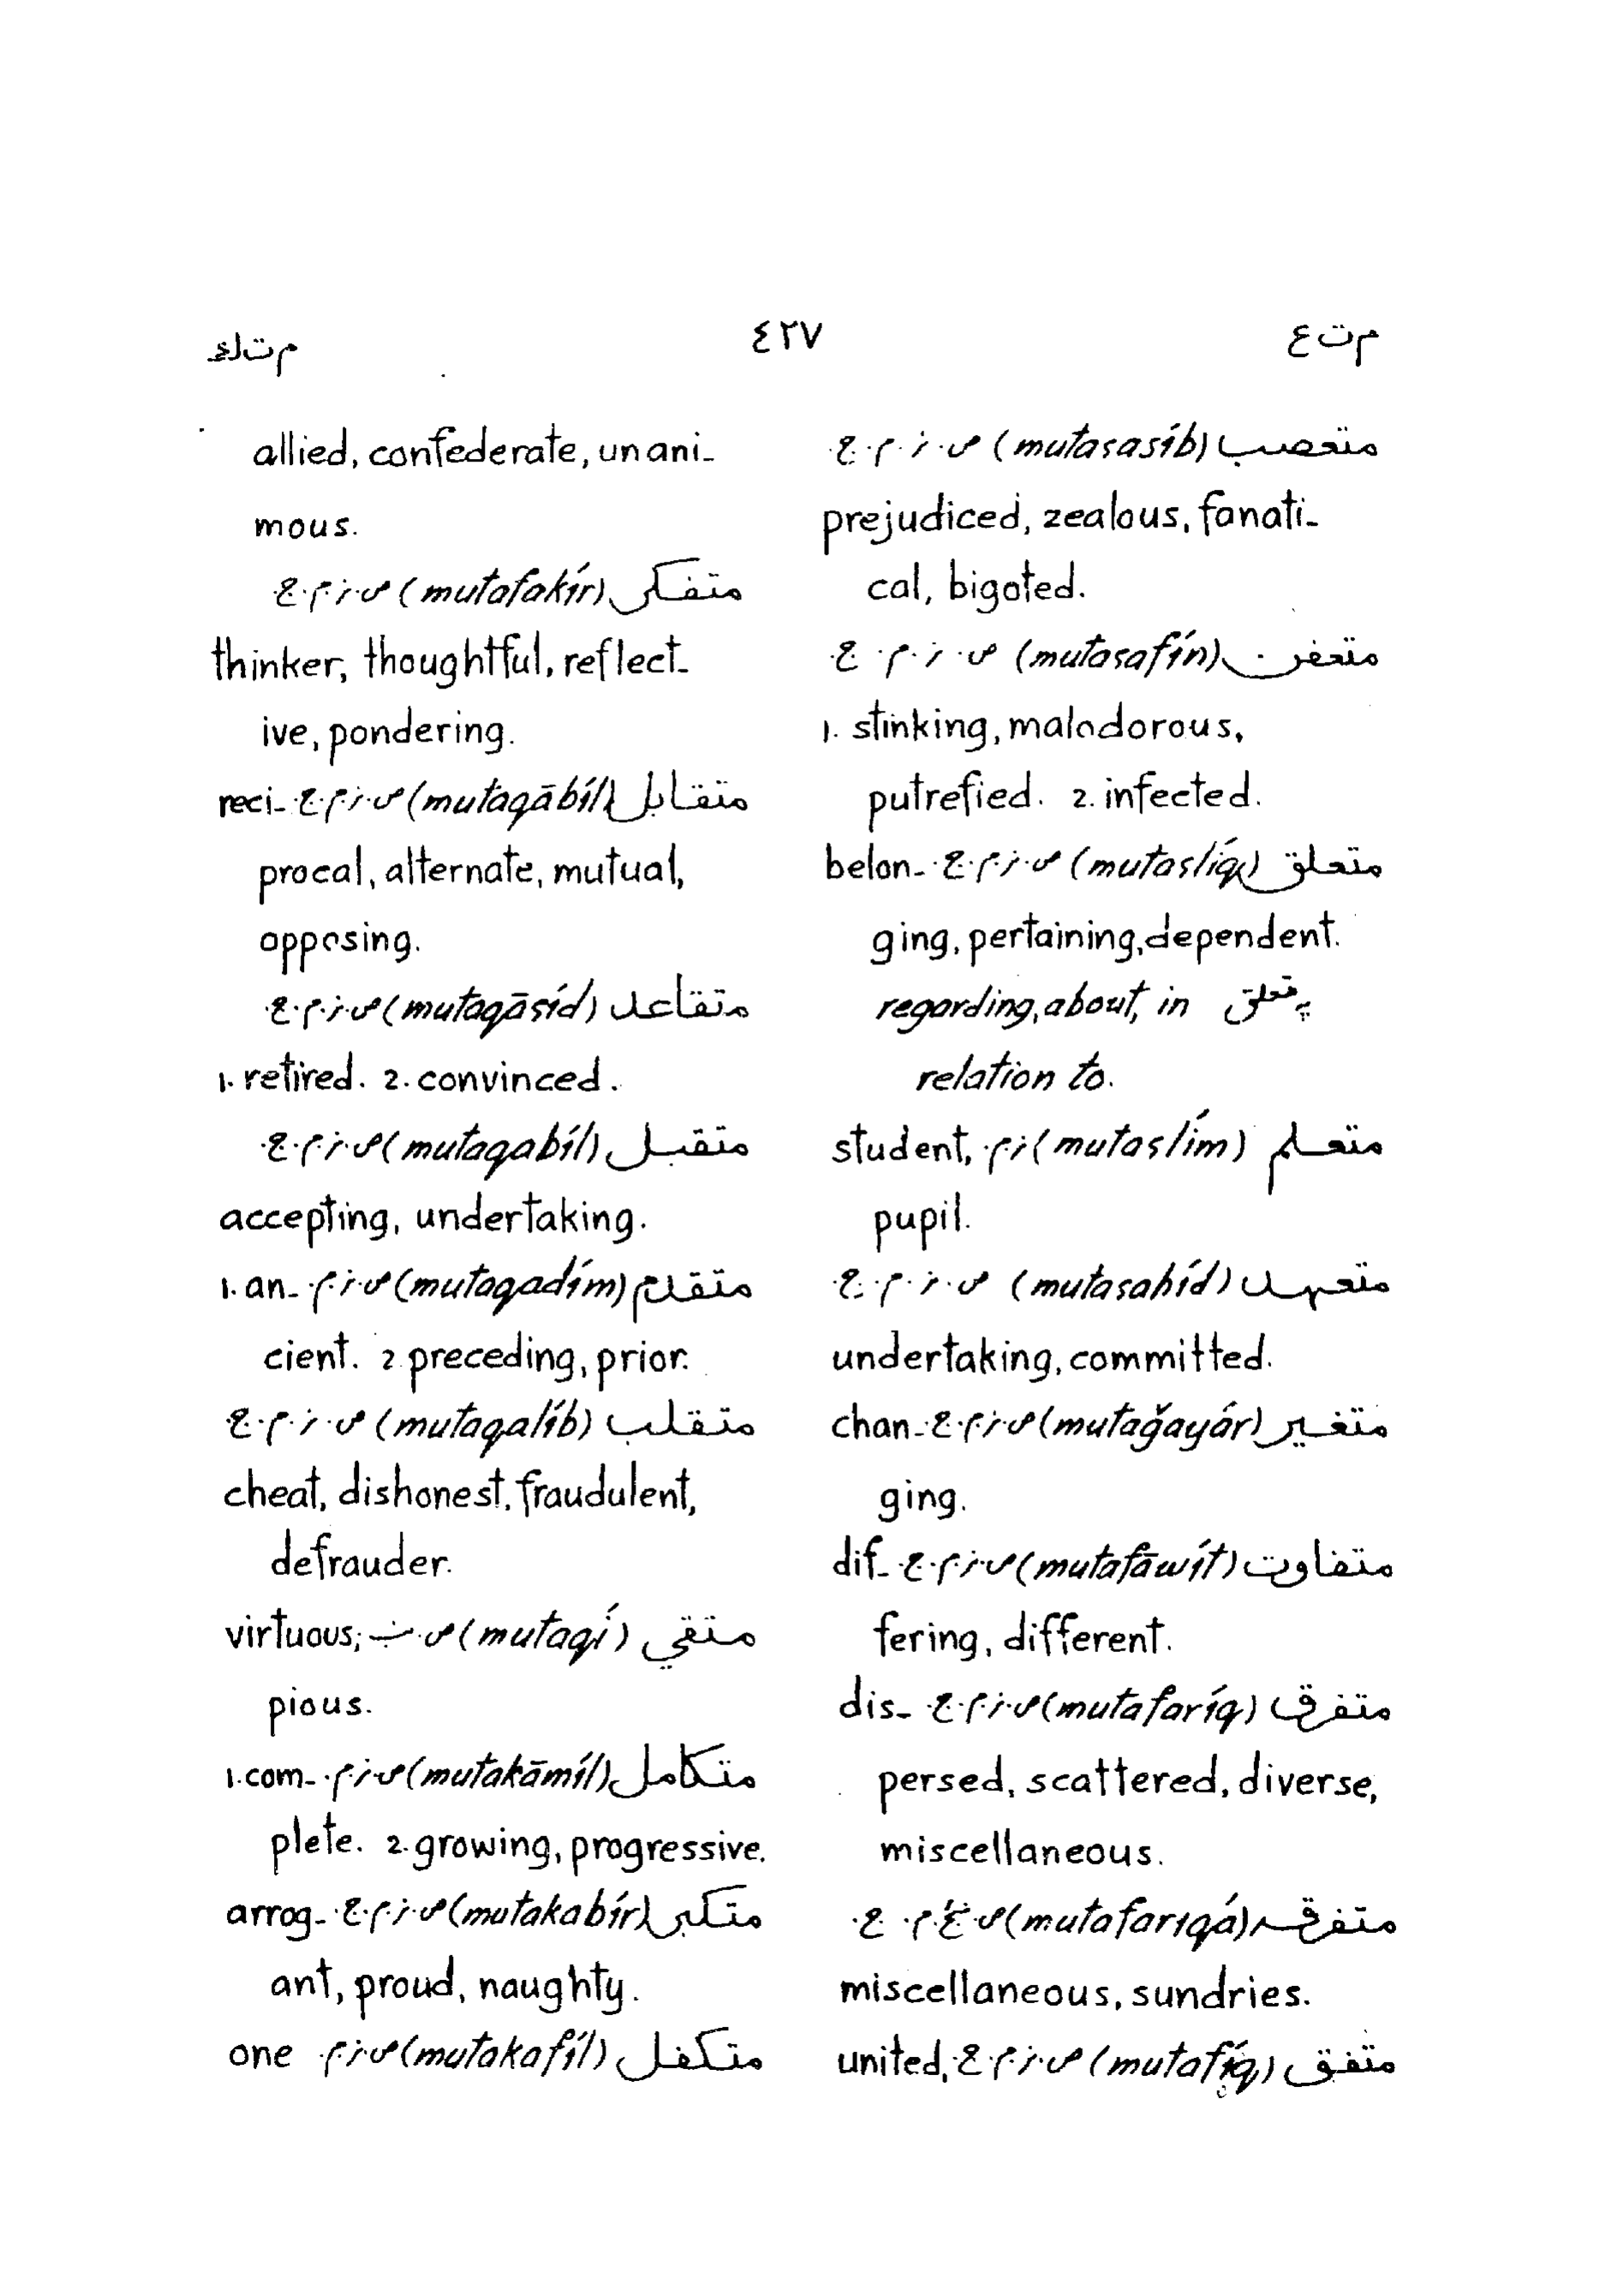 م ت ع ٤٢٧ م ت ك
متعصب (mutaʕasíb) ص. ز. م. ج.
prejudiced, zealous, fanati-
cal, bigoted.
متعفن (mutaʕafín) ص. ز. م. ج.
1. stinking, malodorous,
putrefied. 2. infected.
متعلق (mutaʕlíq) ص. ز. م. ج. belon-
ging, pertaining, dependent.
regarding, about, in
relation to.
متعلم (mutaʕlím) ز. م. student,
pupil.
متعهد (mutaʕahíd) ص. ز. م. ج.
undertaking, committed.
متغير (mutağayár) ص. ز. م. ج. chan-
ging.
متفاوت (mutafāwít) ص. ز. م. ج. dif-
fering, different.
متفرق (mutafaríq) ص. ز. م. ج. dis-
persed, scattered, diverse,
miscellaneous.
متفرقه (mutafarıqá) ص. م. ج.
miscellaneous, sundries.
متفق (mutafíq) ص. ز. م. ج. united,
allied, confederate, unani-
mous.
متفكر (mutafakír) ص. ز. م. ج.
thinker, thoughtful, reflect-
ive, pondering.
متقابل (mutaqābíl) ص. ز. م. ج. reci-
procal, alternate, mutual,
opposing.
متقاعد (mutaqāʕíd) ص. ز. م. ج.
1. retired. 2. convinced.
متقبل (mutaqabíl) ص. ز. م. ج.
accepting, undertaking.
متقدم (mutaqadím) ص. ز. م. 1. an-
cient. 2 preceding, prior.
متقلب (mutaqalíb) ص. ز. م. ج.
cheat, dishonest, fraudulent,
defrauder.
متقي (mutaqí) ص. ب. virtuous,
pious.
متكامل (mutakāmíl) ص. ز. م. 1. com-
plete. 2. growing, progressive.
متكبر (mutakabír) ص. ز. م. ج. arrog-
ant, proud, naughty.
متكفل (mutakafíl) ص. ز. م. one